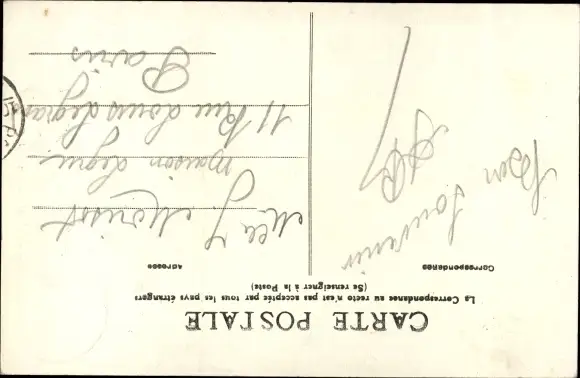 CARTE POSTALE
La Correspondance au recto n'est pas acceptée par tous les pays étrangers
(Se renseigner à la Poste)
Correspondance
Adresse
Bon Souvenir
Mlle J. Morisot
maison Legui
11 Rue Louis Legrand
Paris